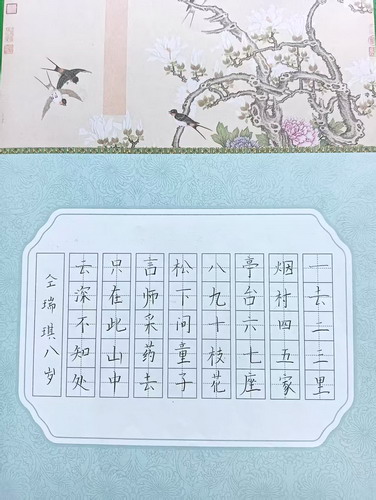 一去二三里
烟村四五家
亭台六七座
八九十枝花
松下问童子
言师采药去
只在此山中
云深不知处
仝瑞琪八岁